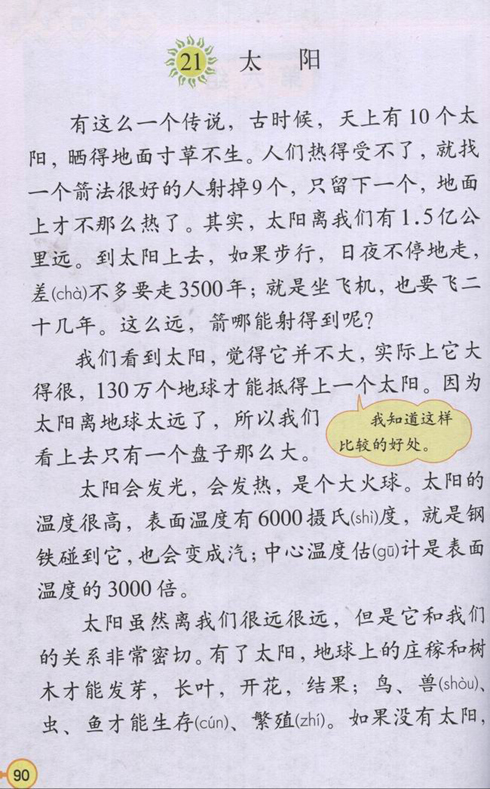 21 太阳
有这么一个传说，古时候，天上有10个太
阳，晒得地面寸草不生。人们热得受不了，就找
一个箭法很好的人射掉9个，只留下一个，地面
上才不那么热了。其实，太阳离我们有1.5亿公
里远。到太阳上去，如果步行，日夜不停地走，
差(chà)不多要走3500年；就是坐飞机，也要飞二
十几年。这么远，箭哪能射得到呢？
我们看到太阳，觉得它并不大，实际上它大
得很，130万个地球才能抵得上一个太阳。因为
太阳离地球太远了，所以我们
看上去只有一个盘子那么大。
我知道这样
比较的好处。
太阳会发光，会发热，是个大火球。太阳的
温度很高，表面温度有6000摄氏(shì)度，就是钢
铁碰到它，也会变成汽；中心温度估(gū)计是表面
温度的3000倍。
太阳虽然离我们很远很远，但是它和我们
的关系非常密切。有了太阳，地球上的庄稼和树
木才能发芽，长叶，开花，结果；鸟、兽(shòu)、
虫、鱼才能生存(cún)、繁殖(zhí)。如果没有太阳，
90